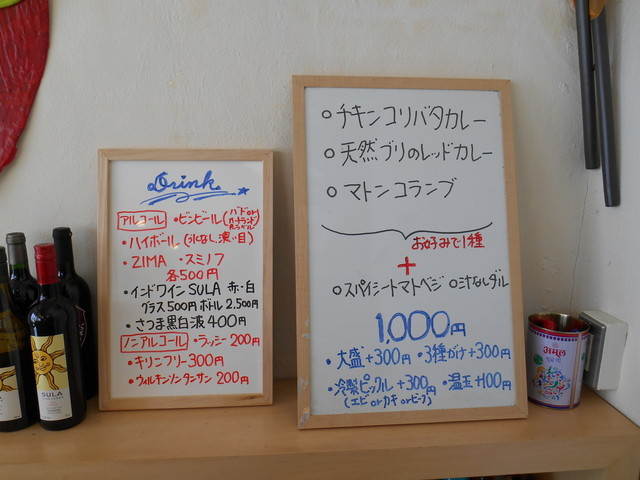 Drink
アルコール ・ビンビール
・ハイボール(氷なし、濃い目)
・ZIMA ・スミノフ
各500円
・インドワイン SULA 赤・白
グラス500円 ボトル 2,500円
・さつま黒白波 400円
ノンアルコール ・ラッシー 200円
・キリンフリー 300円
・ウィルキンソンタンサン 200円
○ チキンコリバタカレー
○ 天然ブリのレッドカレー
○ マトンコランブ
お好みで1種
+
○スパイシートマトベジ ○汁なしダル
1,000円
・大盛+300円 ・3種がけ+300円
・冷製ピックル+300円 ・温玉+100円
(エビ or カキ or ビーフ)
SULA